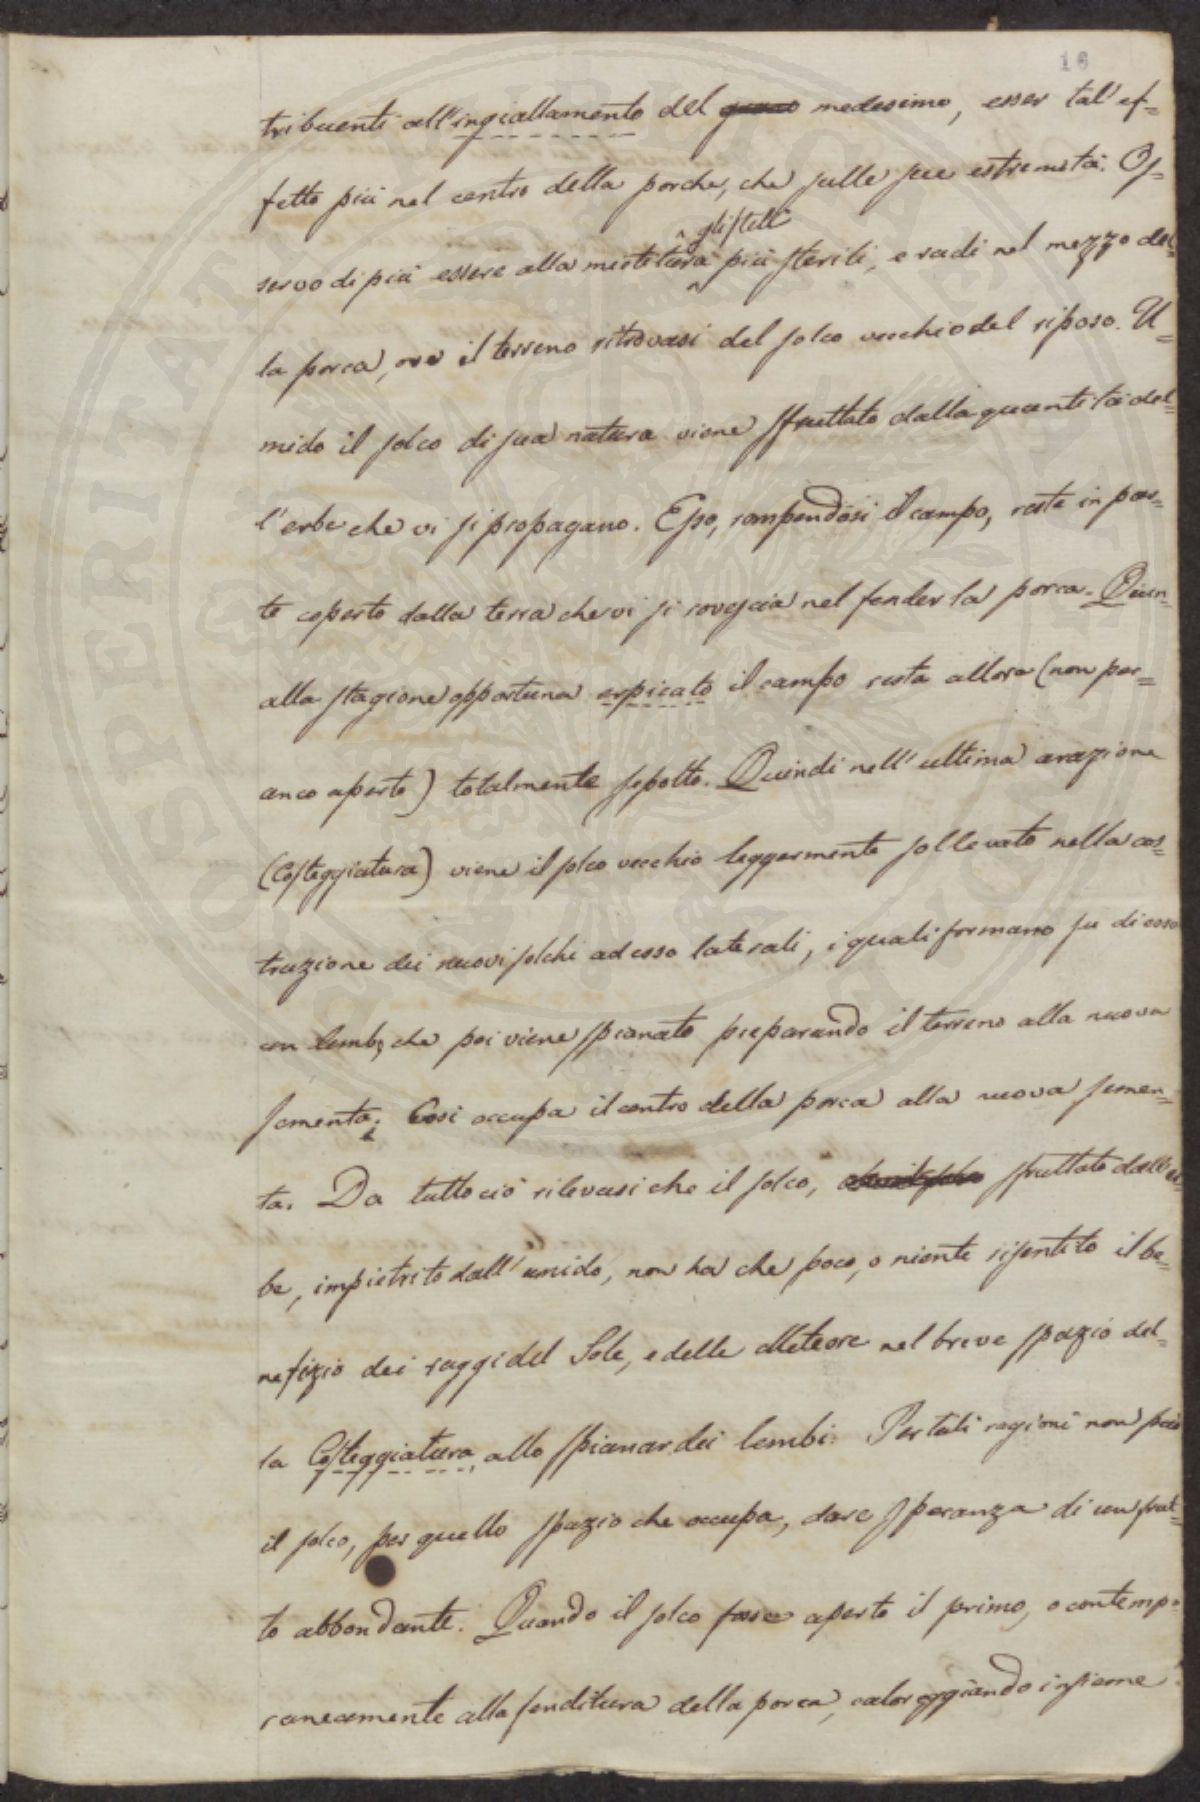 16
tribuenti all'ingiallamento del medesimo, esser tal' ef-
fetto più nel centro della porche, che sulle sue estremità. Os-
gli steli
servo di più essere alla mietitura più sterili, e radi nel mezzo del-
la porca, ove il terreno ritrovasi del solco vecchio del riposo. U-
mido il solco di sua natura viene sfruttato dalla quantità del-
l'erbe che vi si propagano. Esso, rompendosi il campo, resta in par-
te coperto dalla terra che vi si rovescia nel fender la porca. Quin-
alla stagione opportuna erpicato il campo resta allora (non per-
anco aperto) totalmente sepolto. Quindi nell'ultima arazione
(Costeggiatura) viene il solco vecchio leggermente sollevato nella cos-
truzione dei nuovi solchi ad esso laterali, i quali formano su di esso
un lembo, che poi viene spianato preparando il terreno alla nuova
sementa; Così occupa il centro della porca alla nuova semen-
ta. Da tutto ciò rilevasi che il solco, sfruttato dall'er-
be, impietrito dall'umido, non ha che poco, o niente risentito il be-
nefizio dei raggi del Sole, e delle Meteore nel breve spazio del-
la Costeggiatura allo spianar dei lembi. Per tali ragioni non può
il solco, per quello spazio che occupa, dare speranza di un frut-
to abbondante. Quando il solco fosse aperto il primo, o contempo-
raneamente alla fenditura della porca, caloreggiando insieme